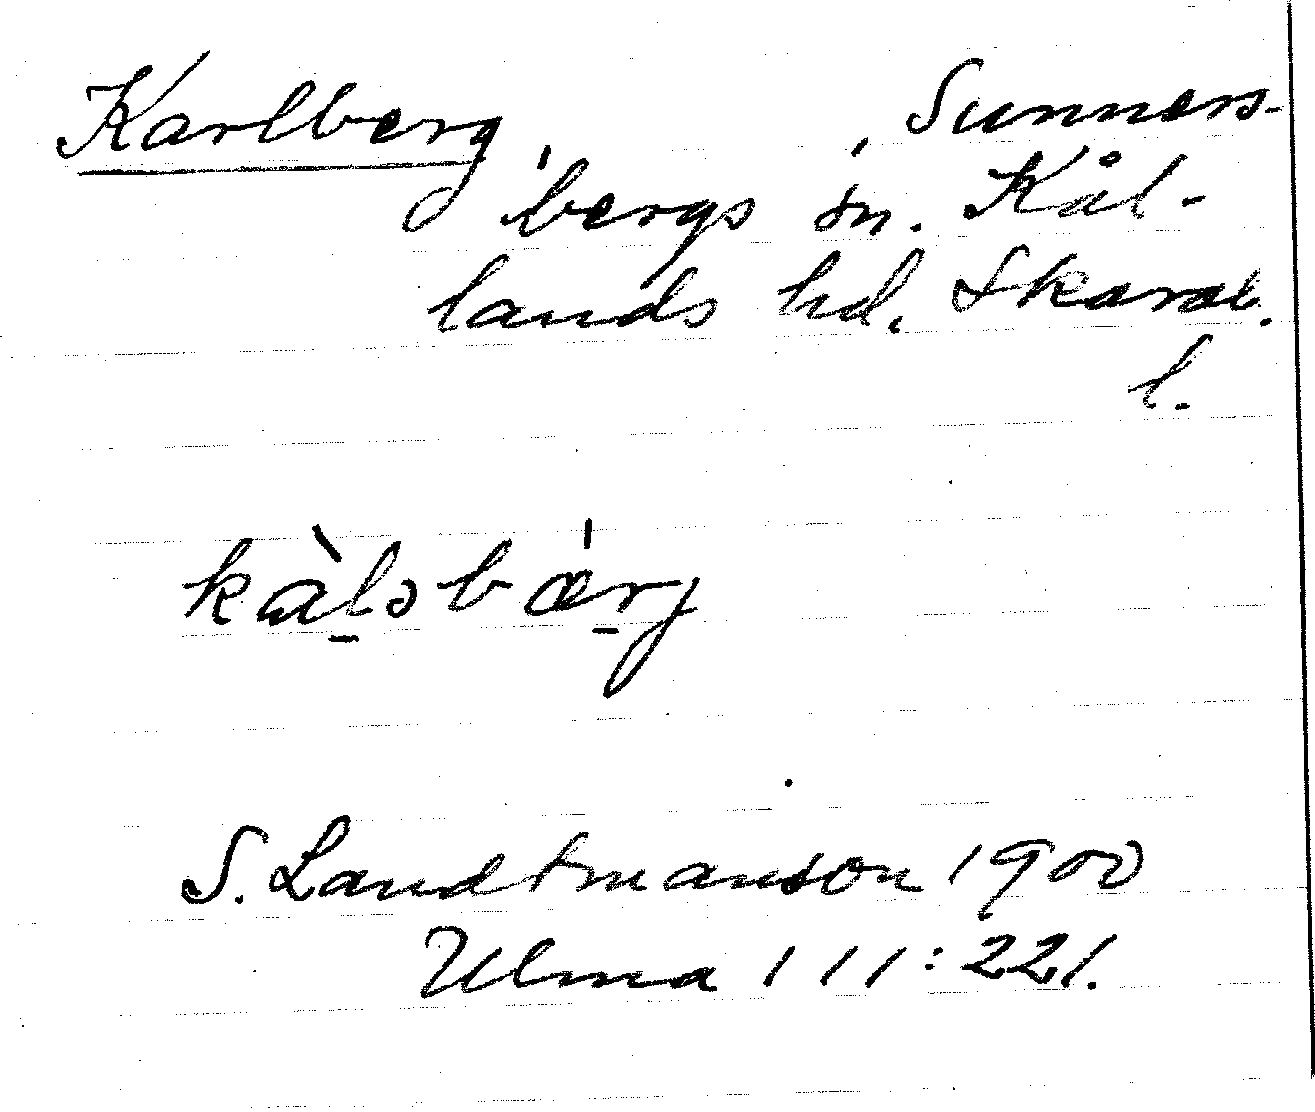 Karlberg, Sunners-
bergs sn. Kål-
lands hd. Skarab.
l.
kàl̠sbæ̍r̠j
S. Landtmanson 1900
Ulma 111:221.